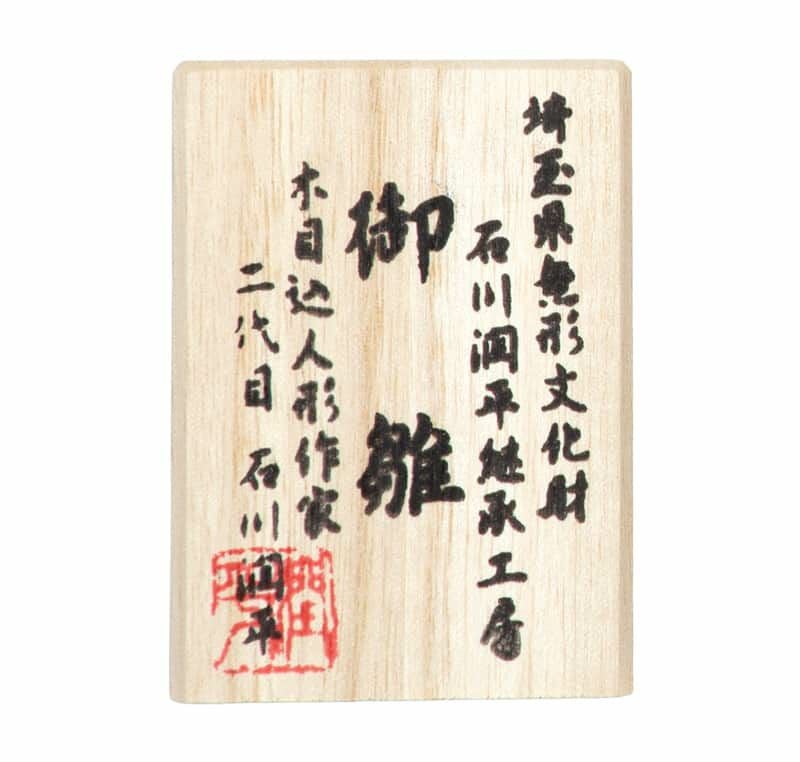 埼玉県無形文化財
石川潤平継承工房
御雛
木目込人形作家
二代目 石川潤平